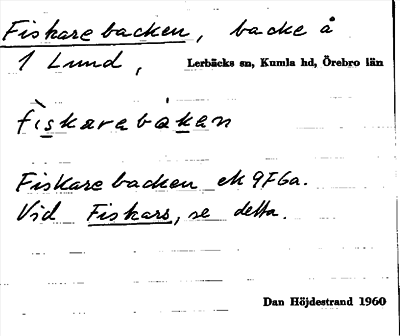 Fiskarebacken, backe å
1 Lund, Lerbäcks sn, Kumla hd, Örebro län
fìskarabàkan
Fiskarebacken ek 9F6a.
Vid Fiskars, se detta.
Dan Höjdestrand 1960